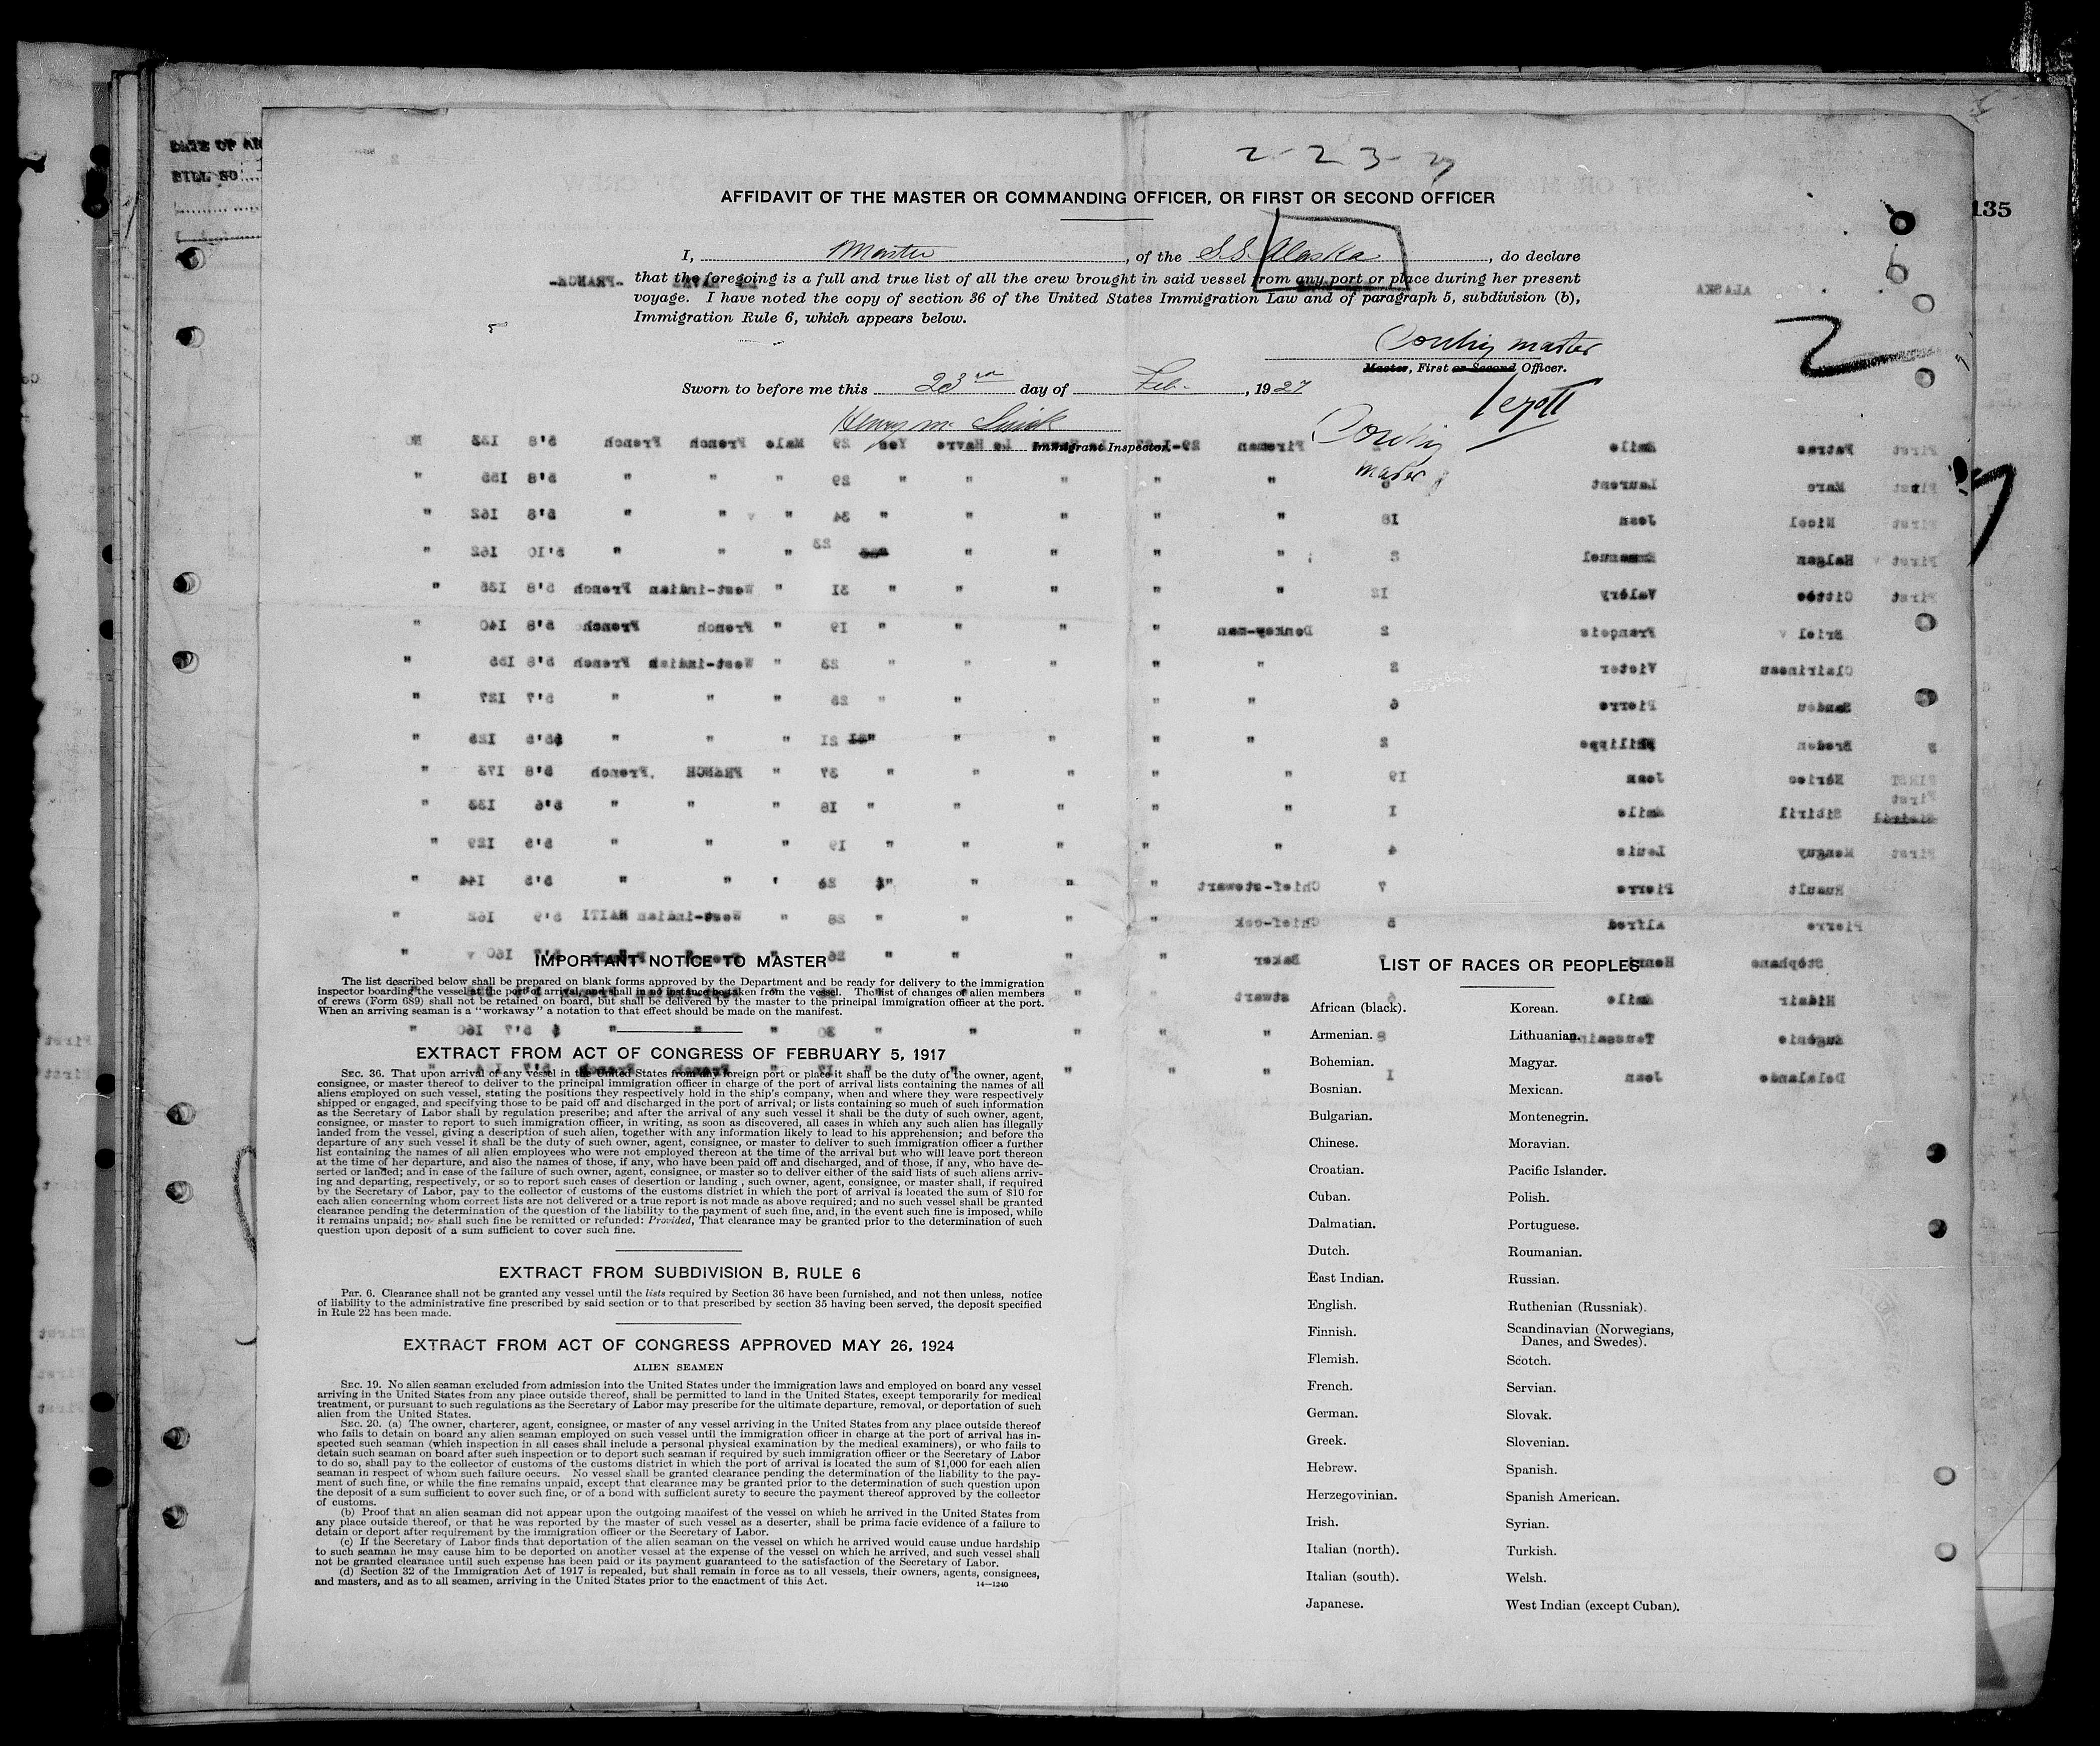 2-23-27
DATE OF AR
BILL NO
135
AFFIDAVIT OF THE MASTER OR COMMANDING OFFICER, OR FIRST OR SECOND OFFICER
I, Master, of the S.S. Alaska, do declare
that the foregoing is a full and true list of all the crew brought in said vessel from any port or place during her present
voyage. I have noted the copy of section 36 of the United States Immigration Law and of paragraph 5, subdivision (b),
Immigration Rule 6, which appears below.
ALASKA
FRANCE
6
2
master
Master, First or Second Officer.
Sworn to before me this 23rd day of Feb., 1927
Henry
Immigrant Inspector.
master
7
First Patras Emile Fireman Le Havre Yes 29 Male French French 5'8 133 NO
First Marc Laurent 6 " " " " " 29 " " " 5'8 155 "
First Nicol Jean 18 " " " " " 34 " " " 5'8 162 "
First Halgan Emmanuel 2 " " " " 23 " " " 5'10 162 "
First Cittée Valéry 12 " " " " " 31 " West-indian French 5'8 136 "
Briel François 2 Donkey-man " " " " 19 " French French 5'8 140 "
Clairineau Victor 2 " " " " " 23 " West-indian French 5'8 155 "
Sandou Pierre 6 " " " " 25 " " " 5'7 127 "
Bredon Philippe 2 " " " " 21 " " " 5'5 126 "
FIRST Hérieo Jean 19 " " " " " 37 " FRANCH French 5'8 173 "
First Sibiril Emile 1 " " " " " 18 " " " 5'6 133 "
First Menguy Louis 4 " " " " " 19 " " " 5'5 129 "
Ruault Pierre 7 Chief-stewart " " " " 26 " " " 5'5 144 "
Pierre Alfred 5 Chief-cook " " " " 28 " West-indian HAITI 5'9 162 "
Stéphane Henri Baker " " " " 26 " 5'7 160 "
Hidair Emile 6 stewart " "
Eugénie Toussaint 8 " " " " " 30 " " " 5'7 160 "
Delalande Jean 1 " " " "
IMPORTANT NOTICE TO MASTER
The list described below shall be prepared on blank forms approved by the Department and be ready for delivery to the immigration
inspector boarding the vessel at the port of arrival, and shall in no instance be taken from the vessel. The list of changes of alien members
of crews (Form 689) shall not be retained on board, but shall be delivered by the master to the principal immigration officer at the port.
When an arriving seaman is a "workaway" a notation to that effect should be made on the manifest.
EXTRACT FROM ACT OF CONGRESS OF FEBRUARY 5, 1917
SEC. 36. That upon arrival of any vessel in the United States from any foreign port or place it shall be the duty of the owner, agent,
consignee, or master thereof to deliver to the principal immigration officer in charge of the port of arrival lists containing the names of all
aliens employed on such vessel, stating the positions they respectively hold in the ship's company, when and where they were respectively
shipped or engaged, and specifying those to be paid off and discharged in the port of arrival; or lists containing so much of such information
as the Secretary of Labor shall by regulation prescribe; and after the arrival of any such vessel it shall be the duty of such owner, agent,
consignee, or master to report to such immigration officer, in writing, as soon as discovered, all cases in which any such alien has illegally
landed from the vessel, giving a description of such alien, together with any information likely to lead to his apprehension; and before the
departure of any such vessel it shall be the duty of such owner, agent, consignee, or master to deliver to such immigration officer a further
list containing the names of all alien employees who were not employed thereon at the time of the arrival but who will leave port thereon
at the time of her departure, and also the names of those, if any, who have been paid off and discharged, and of those, if any, who have de-
serted or landed; and in case of the failure of such owner, agent, consignee, or master so to deliver either of the said lists of such aliens arriv-
ing and departing, respectively, or so to report such cases of desertion or landing , such owner, agent, consignee, or master shall, if required
by the Secretary of Labor, pay to the collector of customs of the customs district in which the port of arrival is located the sum of $10 for
each alien concerning whom correct lists are not delivered or a true report is not made as above required; and no such vessel shall be granted
clearance pending the determination of the question of the liability to the payment of such fine, and, in the event such fine is imposed, while
it remains unpaid; nor shall such fine be remitted or refunded: Provided, That clearance may be granted prior to the determination of such
question upon deposit of a sum sufficient to cover such fine.
EXTRACT FROM SUBDIVISION B, RULE 6
PAR. 6. Clearance shall not be granted any vessel until the lists required by Section 36 have been furnished, and not then unless, notice
of liability to the administrative fine prescribed by said section or to that prescribed by section 35 having been served, the deposit specified
in Rule 22 has been made.
EXTRACT FROM ACT OF CONGRESS APPROVED MAY 26, 1924
ALIEN SEAMEN
SEC. 19. No alien seaman excluded from admission into the United States under the immigration laws and employed on board any vessel
arriving in the United States from any place outside thereof, shall be permitted to land in the United States, except temporarily for medical
treatment, or pursuant to such regulations as the Secretary of Labor may prescribe for the ultimate departure, removal, or deportation of such
alien from the United States.
SEC. 20. (a) The owner, charterer, agent, consignee, or master of any vessel arriving in the United States from any place outside thereof
who fails to detain on board any alien seaman employed on such vessel until the immigration officer in charge at the port of arrival has in-
spected such seaman (which inspection in all cases shall include a personal physical examination by the medical examiners), or who fails to
detain such seaman on board after such inspection or to deport such seaman if required by such immigration officer or the Secretary of Labor
to do so, shall pay to the collector of customs of the customs district in which the port of arrival is located the sum of $1,000 for each alien
seaman in respect of whom such failure occurs. No vessel shall be granted clearance pending the determination of the liability to the pay-
ment of such fine, or while the fine remains unpaid, except that clearance may be granted prior to the determination of such question upon
the deposit of a sum sufficient to cover such fine, or of a bond with sufficient surety to secure the payment thereof approved by the collector
of customs.
(b) Proof that an alien seaman did not appear upon the outgoing manifest of the vessel on which he arrived in the United States from
any place outside thereof, or that he was reported by the master of such vessel as a deserter, shall be prima facie evidence of a failure to
detain or deport after requirement by the immigration officer or the Secretary of Labor.
(c) If the Secretary of Labor finds that deportation of the alien seaman on the vessel on which he arrived would cause undue hardship
to such seaman he may cause him to be deported on another vessel at the expense of the vessel on which he arrived, and such vessel shall
not be granted clearance until such expense has been paid or its payment guaranteed to the satisfaction of the Secretary of Labor.
(d) Section 32 of the Immigration Act of 1917 is repealed, but shall remain in force as to all vessels, their owners, agents, consignees,
and masters, and as to all seamen, arriving in the United States prior to the enactment of this Act.
14—1240
LIST OF RACES OR PEOPLES
African (black).
Armenian.
Bohemian.
Bosnian.
Bulgarian.
Chinese.
Croatian.
Cuban.
Dalmatian.
Dutch.
East Indian.
English.
Finnish.
Flemish.
French.
German.
Greek.
Hebrew.
Herzegovinian.
Irish.
Italian (north).
Italian (south).
Japanese.
Korean.
Lithuanian.
Magyar.
Mexican.
Montenegrin.
Moravian.
Pacific Islander.
Polish.
Portuguese.
Roumanian.
Russian.
Ruthenian (Russniak).
Scandinavian (Norwegians,
Danes, and Swedes).
Scotch.
Servian.
Slovak.
Slovenian.
Spanish.
Spanish American.
Syrian.
Turkish.
Welsh.
West Indian (except Cuban).